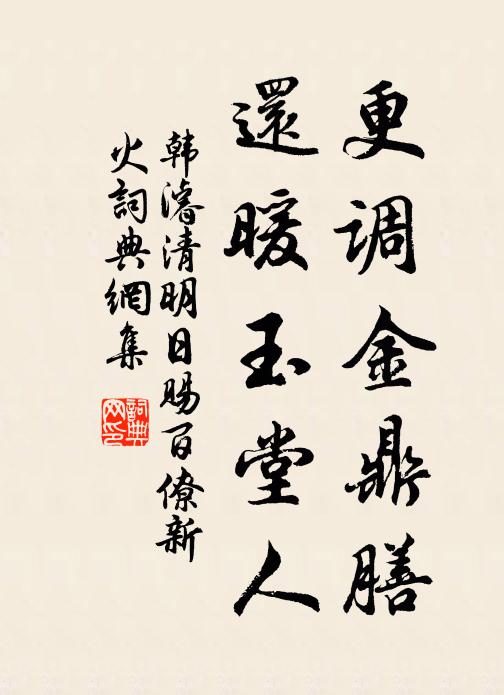 更调金鼎膳
還暖玉堂人
韩濬清明日赐百僚新
火詞典網集
詞典網印